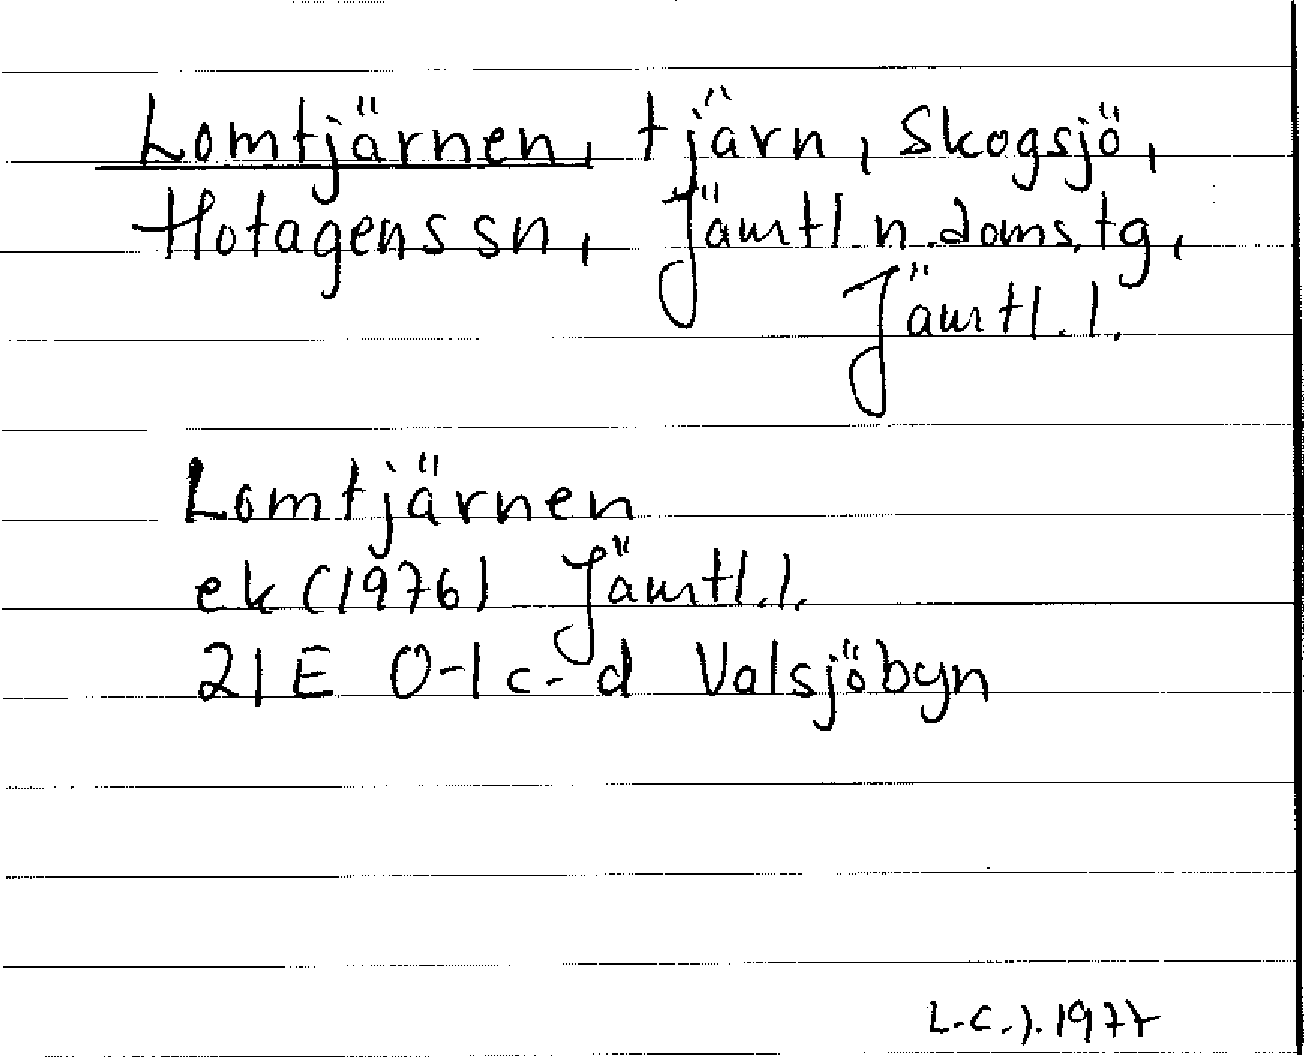 Lomtjärnen, tjärn, Skogsjö,
Hotagens sn, Jämtl. n. doms. tg,
Jämtl. l.
Lomtjärnen
ek (1976) Jämtl. l.
21E 0-1 c-d Valsjöbyn
L-C. J. 1977